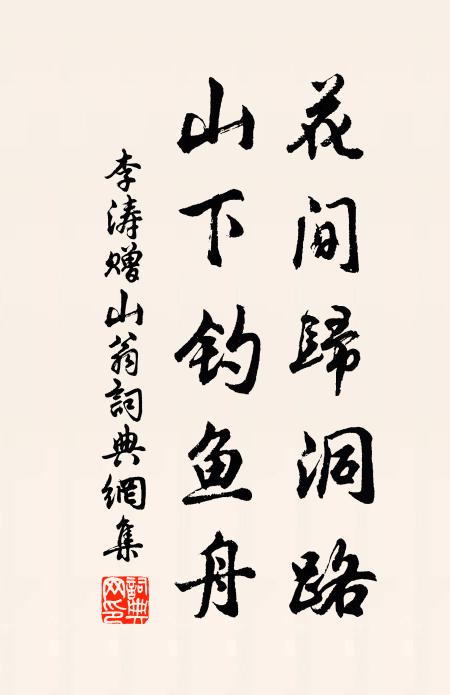 花间歸洞路
山下钓鱼舟
李涛赠山翁詞典網集